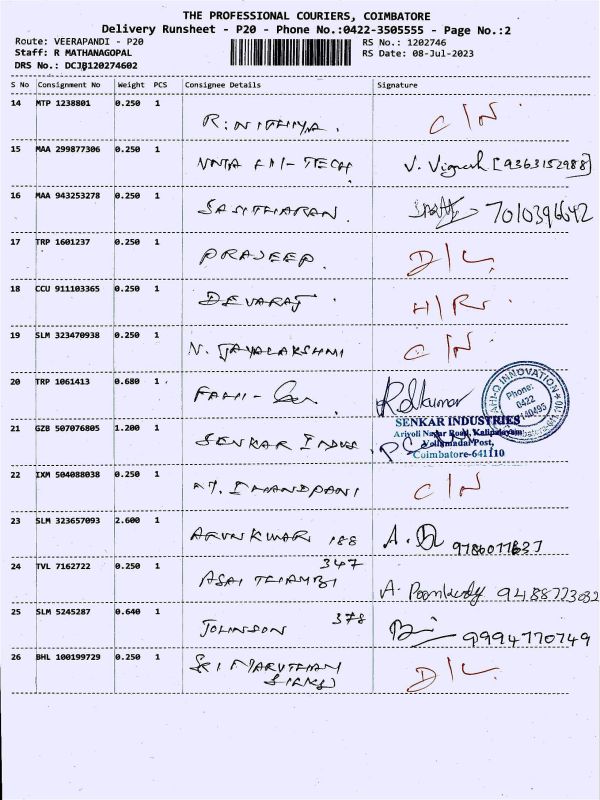 THE PROFESSIONAL COURIERS, COIMBATORE
Delivery Runsheet - P20 - Phone No.:0422-3505555 - Page No.:2
Route: VEERAPANDI - P20
Staff: R MATHANAGOPAL
DRS No.: DCJB120274602
RS No.: 1202746
RS Date: 08-Jul-2023
S No Consignment No Weight PCS Consignee Details Signature
14 MTP 1238801 0.250 1 R. NITHIYA. C/N
15 MAA 299877306 0.250 1 HI-TECH V. Vignesh [9363152988]
16 MAA 943253278 0.250 1 SASITHARAN. 7010396642
17 TRP 1601237 0.250 1 PRADEEP. D/L
18 CCU 911103365 0.250 1 DEVARAJ H/R
19 SLM 323470938 0.250 1 N. JAYALAKSHMI C/N
20 TRP 1061413 0.680 1
INNOVATION
Phone:
0422
21 GZB 507076805 1.200 1 SENKAR INDUS.
SENKAR INDUSTRIES
Arivoli Nagar Road, Kalipalayam
Vellamadai Post,
Coimbatore-641110
22 IXM 504088038 0.250 1 C/N
23 SLM 323657093 2.600 1 ARUNKUMAR 188 A.
24 TVL 7162722 0.250 1 347
ASAI THAMBI A.
25 SLM 5245287 0.640 1 JOHNSON 378 9994770749
26 BHL 100199729 0.250 1 SRI D/L